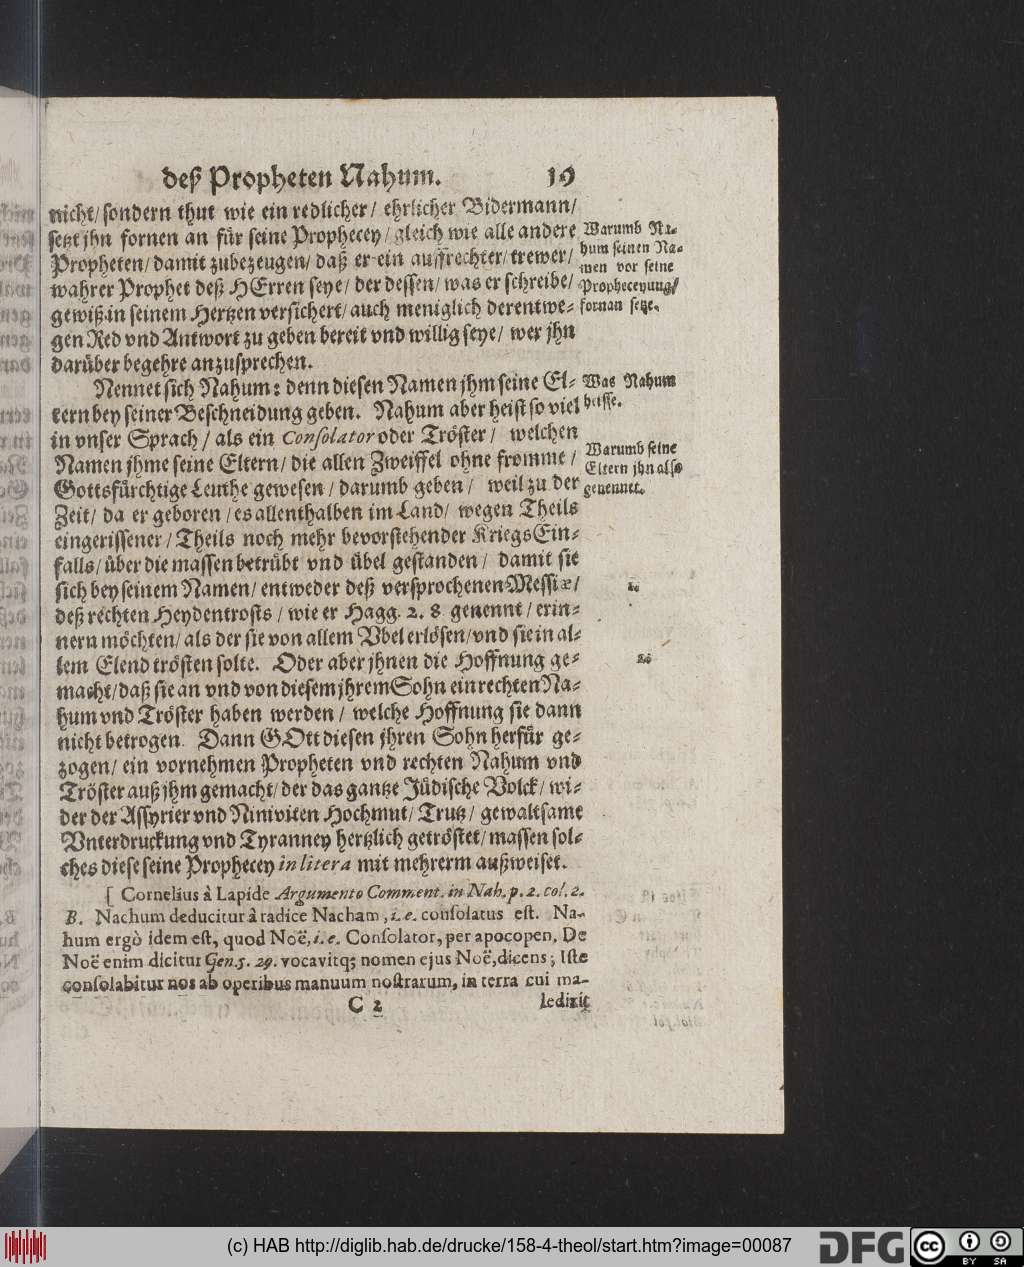 deß Propheten Nahum. 19
nicht/ sondern thut wie ein redlicher/ ehrlicher Bidermann/
setzt jhn fornen an für seine Prophecey/ gleich wie alle andere
Propheten/ damit zubezeugen/ daß er ein auffrechter/ trewer/
wahrer Prophet deß HErren seye/ der dessen/ was er schreibe/
gewiß in seinem Hertzen versichert/ auch meniglich derentwe-
gen Red vnd Antwort zu geben bereit vnd willig seye/ wer jhn
darüber begehre anzusprechen.
Warumb Na-
hum seinen Na-
men vor seine
Propheceyung/
fornan setze.
Nennet sich Nahum: denn diesen Namen jhm seine El-
tern bey seiner Beschneidung geben. Nahum aber heist so viel
in vnser Sprach/ als ein Consolator oder Tröster/ welchen
Namen jhme seine Eltern/ die allen Zweiffel ohne fromme/
Gottsfürchtige Leuthe gewesen/ darumb geben/ weil zu der
Zeit/ da er geboren/ es allenthalben im Land/ wegen Theils
eingerissener/ Theils noch mehr bevorstehender KriegsEin-
falls/ über die massen betrübt vnd übel gestanden/ damit sie
sich bey seinem Namen/ entweder deß versprochenen Messiæ/
deß rechten Heydentrosts/ wie er Hagg. 2. 8. genennt/ erin-
nern möchten/ als der sie von allem Vbel erlösen/ vnd sie in al-
lem Elend trösten solte. Oder aber jhnen die Hoffnung ge-
macht/ daß sie an vnd von diesem jhrem Sohn ein rechten Na-
hum vnd Tröster haben werden/ welche Hoffnung sie dann
nicht betrogen. Dann GOtt diesen jhren Sohn herfür ge-
zogen/ ein vornehmen Propheten vnd rechten Nahum vnd
Tröster auß jhm gemacht/ der das gantze Jüdische Volck/ wi-
der der Assyrier vnd Niniviten Hochmut/ Trutz/ gewaltsame
Vnterdruckung vnd Tyranney hertzlich getröstet/ massen sol-
ches diese seine Prophecey in litera mit mehrerm außweiset.
Was Nahum
heisse.
Warumb seine
Eltern jhn also
genennet.
[ Cornelius à Lapide Argumento Comment. in Nah. p. 2. col. 2.
B. Nachum deducitur à radice Nacham, i. e. consolatus est. Na-
hum ergò idem est, quod Noë, i. e. Consolator, per apocopen. De
Noë enim dicitur Gen. 5. 29. vocavitq; nomen ejus Noë, dicens; Iste
consolabitur nos ab operibus manuum nostrarum, in terra cui ma-
C 2 ledixit
(c) HAB http://diglib.hab.de/drucke/158-4-theol/start.htm?image=00087
DFG
cc
BY SA